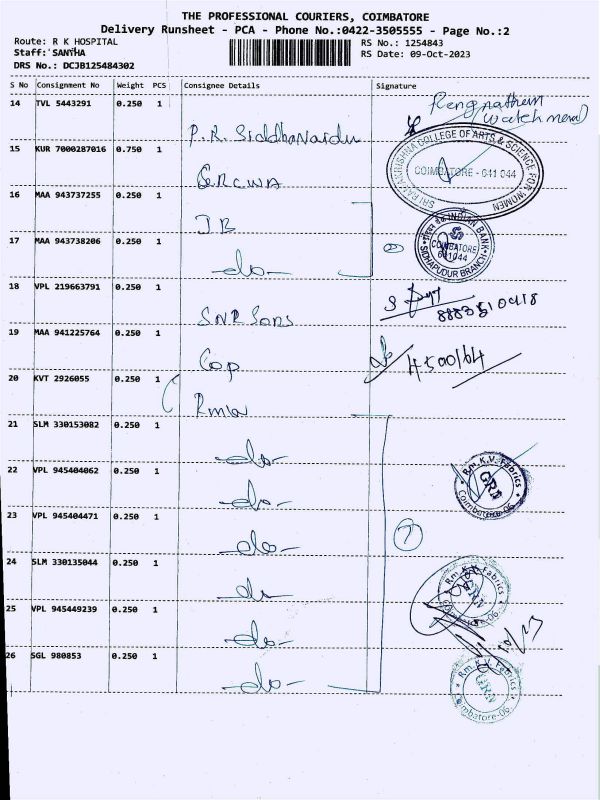 THE PROFESSIONAL COURIERS, COIMBATORE
Delivery Runsheet - PCA - Phone No.:0422-3505555 - Page No.:2
Route: R K HOSPITAL RS No.: 1254843
Staff: SANTHA RS Date: 09-Oct-2023
DRS No.: DCJB125484302
S No Consignment No Weight PCS Consignee Details Signature
14 TVL 5443291 0.250 1 P.R. Siddha Naidu
watchman
15 KUR 7000287016 0.750 1 GRCWA
SRI RAMAKRISHNA COLLEGE OF ARTS & SCIENCE FOR WOMEN
COIMBATORE - 641 044
16 MAA 943737255 0.250 1 IB
17 MAA 943738206 0.250 1 -do-
INDIAN BANK
COIMBATORE
641044
SIDHAPUDUR BRANCH
18 VPL 219663791 0.250 1 SNR Sons
19 MAA 941225764 0.250 1 Cop
20 KVT 2926055 0.250 1
21 SLM 330153082 0.250 1 -do-
22 VPL 945404062 0.250 1 -do-
Rm. K.V. Fabrics
GRN
Coimbatore-06
23 VPL 945404471 0.250 1 -do-
7
24 SLM 330135044 0.250 1 -do-
Rm. K.V. Fabrics
GRN
25 VPL 945449239 0.250 1 -do-
26 SGL 980853 0.250 1 -do-
Rm. K.V. Fabrics
GRN